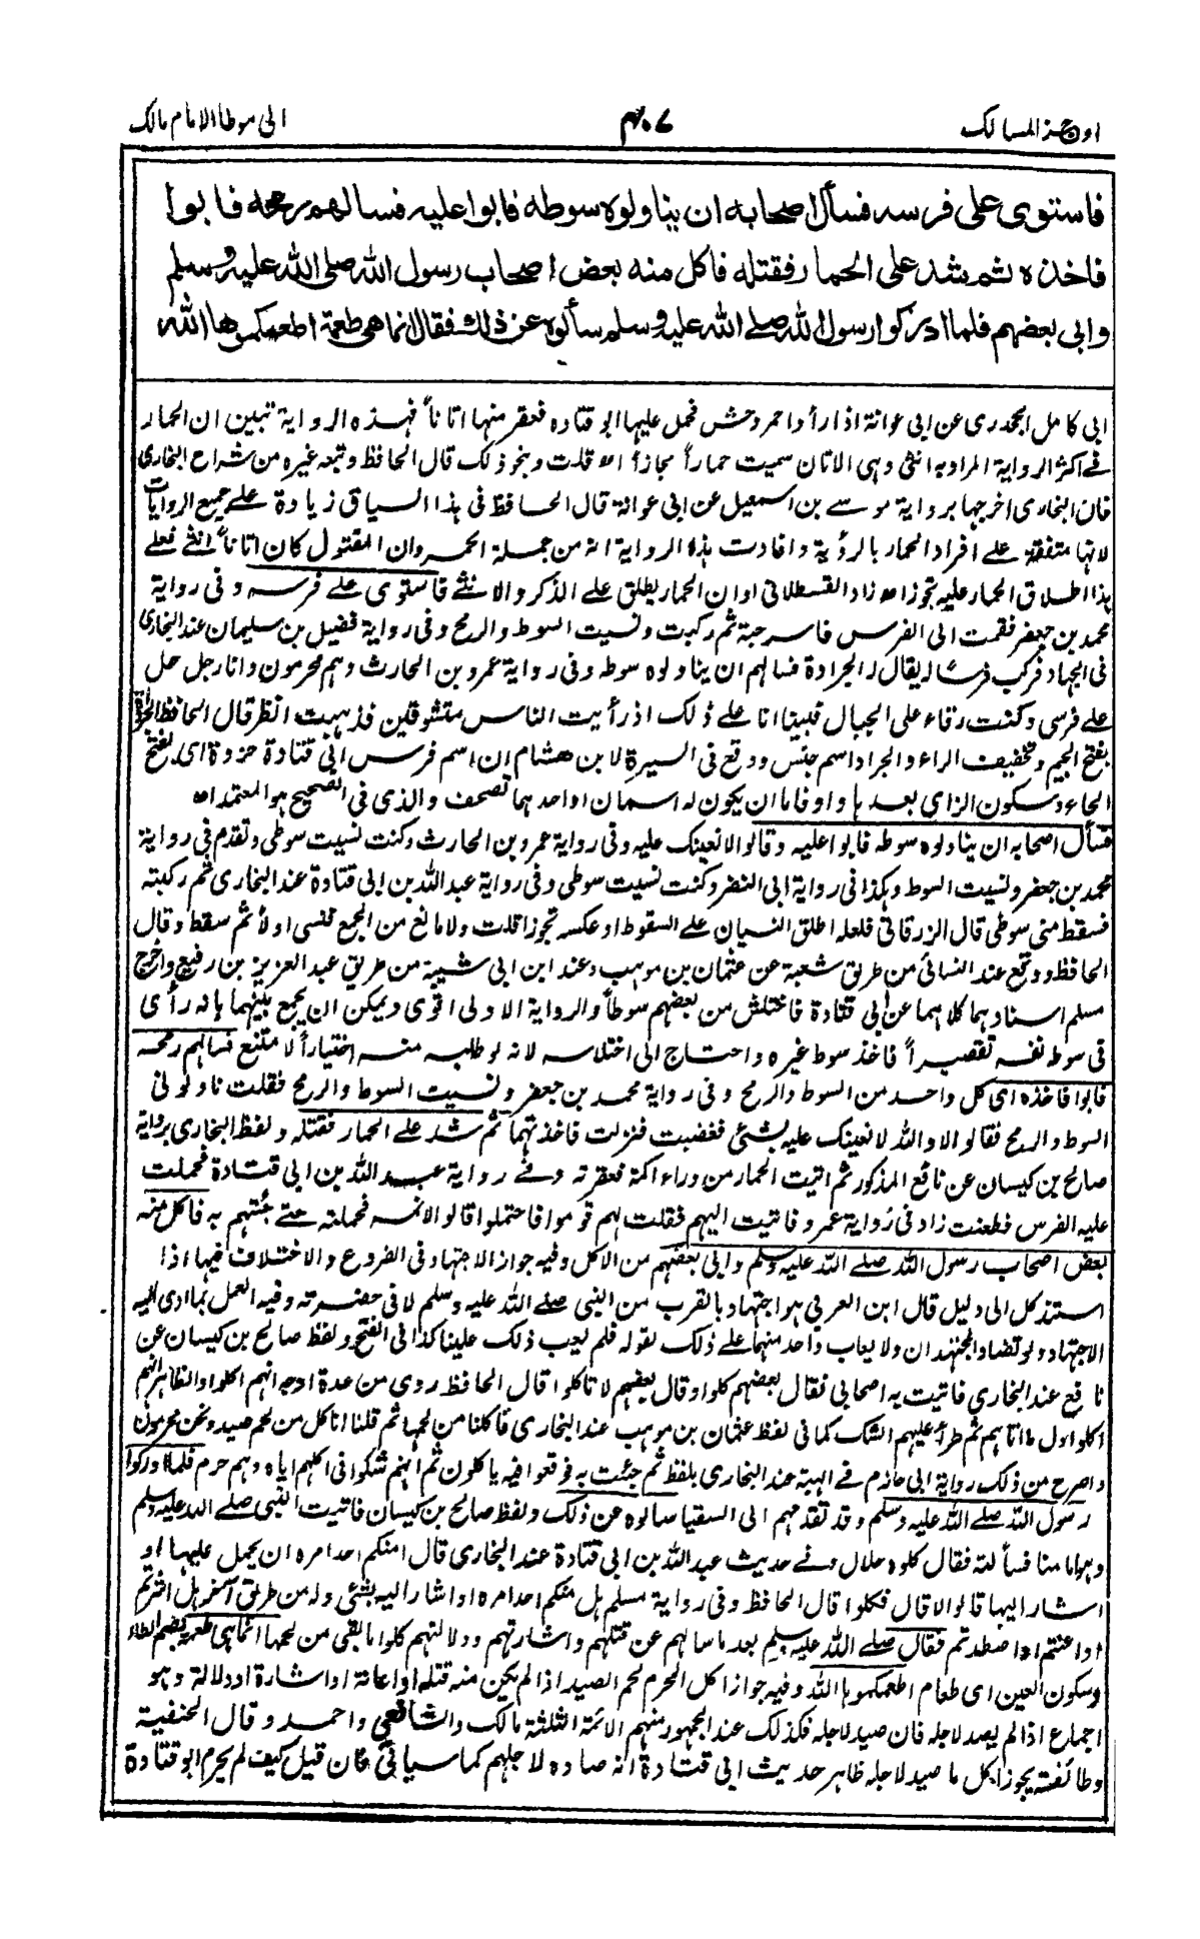 اوجز المسالك ۴۰۷ الى موطا الامام مالك
فاستوى على فرسه فسأل اصحابه ان يناولوه سوطه فابوا عليه فسالهم رمحه فابوا
فاخذه ثم شد على الحمار فقتله فاكل منه بعض اصحاب رسول الله صلى الله عليه وسلم
وابى بعضهم فلما ادركوا رسول الله صلى الله عليه وسلم سألوه عن ذلك فقال انما هى طعمة اطعمكموها الله
ابى كامل الجحدرى عن ابى عوانة اذ رأوا حمر وحش فحمل عليها ابو قتاده فعقر منها اتاناً فهذه الرواية تبين ان الحمار
فى اكثر الرواية المراد به انثى وهى الاتان سميت حماراً مجازاً اه قلت وبنحو ذلك قال الحافظ وتبعه غيره من شراح البخارى
فان البخارى اخرجها برواية موسى بن اسمعيل عن ابى عوانة قال الحافظ فى هذا السياق زيادة على جميع الروايات
لانها متفقة على افراد الحمار بالرؤية وافادت هذه الرواية انه من جملة الحمر وان المقتول كان اتاناً انثى فعلى
هذا اطلاق الحمار عليه تجوز اه زاد القسطلانى او ان الحمار يطلق على الذكر والانثى فاستوى على فرسه وفى رواية
محمد بن جعفر فقمت الى الفرس فاسرجته ثم ركبت ونسيت السوط والرمح وفى رواية فضيل بن سليمان عند البخارى
فى الجهاد فركب فرسا له يقال له الجرادة فسالهم ان يناولوه سوطه وفى رواية عمرو بن الحارث وهم محرمون وانا رجل حل
على فرسى وكنت رقاء على الجبال فبينا انا على ذلك اذ رأيت الناس متشوفين فذهبت انظر قال الحافظ الجرادة
بفتح الجيم وتخفيف الراء والجراد اسم جنس ووقع فى السيرة لابن هشام ان اسم فرس ابى قتادة حزوة اى بفتح
الحاء وسكون الزاى بعدها واو فاما ان يكون له اسمان او احدهما تصحف والذى فى الصحيح هو المعتمد اه
فسأل اصحابه ان يناولوه سوطه فابوا عليه وقالوا لا نعينك عليه وفى رواية عمرو بن الحارث وكنت نسيت سوطى وتقدم فى رواية
محمد بن جعفر ونسيت السوط وهكذا فى رواية ابى النضر وكنت نسيت سوطى وفى رواية عبد الله بن ابى قتادة عند البخارى ثم ركبته
فسقط منى سوطى قال الزرقانى فلعله اطلق النسيان على السقوط او عكسه تجوزا قلت ولا مانع من الجمع فنسى اولاً ثم سقط وقال
الحافظ ووقع عند النسائى من طريق شعبة عن عثمان بن موهب وعند ابن ابى شيبة من طريق عبد العزيز بن رفيع واخرج
مسلم اسنادهما كلاهما عن ابى قتادة فاختلس من بعضهم سوطاً والرواية الاولى اقوى ويمكن ان يجمع بينهما بانه رأى
فى سوط نفسه تقصيراً فاخذ سوط غيره واحتاج الى اختلاسه لانه لو طلبه منه اختياراً لامتنع فسالهم رمحه
فابوا فاخذه اى كل واحد من السوط والرمح وفى رواية محمد بن جعفر ونسيت السوط والرمح فقلت ناولونى
السوط والرمح فقالوا لا والله لا نعينك عليه بشئ فغضبت فنزلت فاخذتهما ثم شد على الحمار فقتله ولفظ البخارى برواية
صالح بن كيسان عن نافع المذكور ثم اتيت الحمار من وراء اكمة فعقرته وفى رواية عبد الله بن ابى قتادة فحملت
عليه الفرس فطعنت زاد فى رواية عمرو فاتيت اليهم فقلت لهم قوموا فاحتملوا قالوا لا نمسه فحملته حتى جئتهم به فاكل منه
بعض اصحاب رسول الله صلى الله عليه وسلم وابى بعضهم من الاكل وفيه جواز الاجتهاد فى الفروع والاختلاف فيها اذا
استند كل الى دليل قال ابن العربى هو اجتهاد بالقرب من النبى صلى الله عليه وسلم لا فى حضرته وفيه العمل بما ادى اليه
الاجتهاد ولو تضاد المجتهدان ولا يعاب واحد منهما على ذلك لقوله فلم يعب ذلك علينا كذا فى الفتح ولفظ صالح بن كيسان عن
نافع عند البخارى فاتيت به اصحابى فقال بعضهم كلوا وقال بعضهم لا تاكلوا قال الحافظ روى من عدة اوجه انهم اكلوا والظاهر انهم
اكلوا اول ما اتاهم ثم طرأ عليهم الشك كما فى لفظ عثمان بن موهب عند البخارى فاكلنا من لحمها ثم قلنا اناكل من لحم صيد ونحن محرمون
واصرح من ذلك رواية ابى حازم فى الهبة عند البخارى بلفظ ثم جئت به فوقعوا فيه ياكلون ثم انهم شكوا فى اكلهم اياه وهم حرم فلما ادركوا
رسول الله صلى الله عليه وسلم وقد تقدمهم الى السقيا سالوه عن ذلك ولفظ صالح بن كيسان فاتيت النبى صلى الله عليه وسلم
وهو امامنا فسألته فقال كلوه حلال وفى حديث عبد الله بن ابى قتادة عند البخارى قال امنكم احد امره ان يحمل عليها او
اشار اليها قالوا لا قال فكلوا قال الحافظ وفى رواية مسلم هل منكم احد امره او اشار اليه بشئ وله من طريق آخر هل اشرتم
او اعنتم او اصطدتم فقال صلى الله عليه وسلم بعد ما سالهم عن قتلهم واشارتهم ودلالتهم كلوا ما بقى من لحمها انما هى طعمة بضم الطاء
وسكون العين اى طعام اطعمكموها الله وفيه جواز اكل المحرم لحم الصيد اذا لم يكن منه قتله او اعانة او اشارة او دلالة وهو
اجماع اذا لم يصد لاجله فان صيد لاجله فكذلك عند الجمهور منهم الائمة الثلثة مالك والشافعى واحمد وقال الحنفية
وطائفة يجوز اكل ما صيد لاجله ظاهر حديث ابى قتادة انه صاده لاجلهم كما سياتى فان قيل كيف لم يحرم ابو قتادة